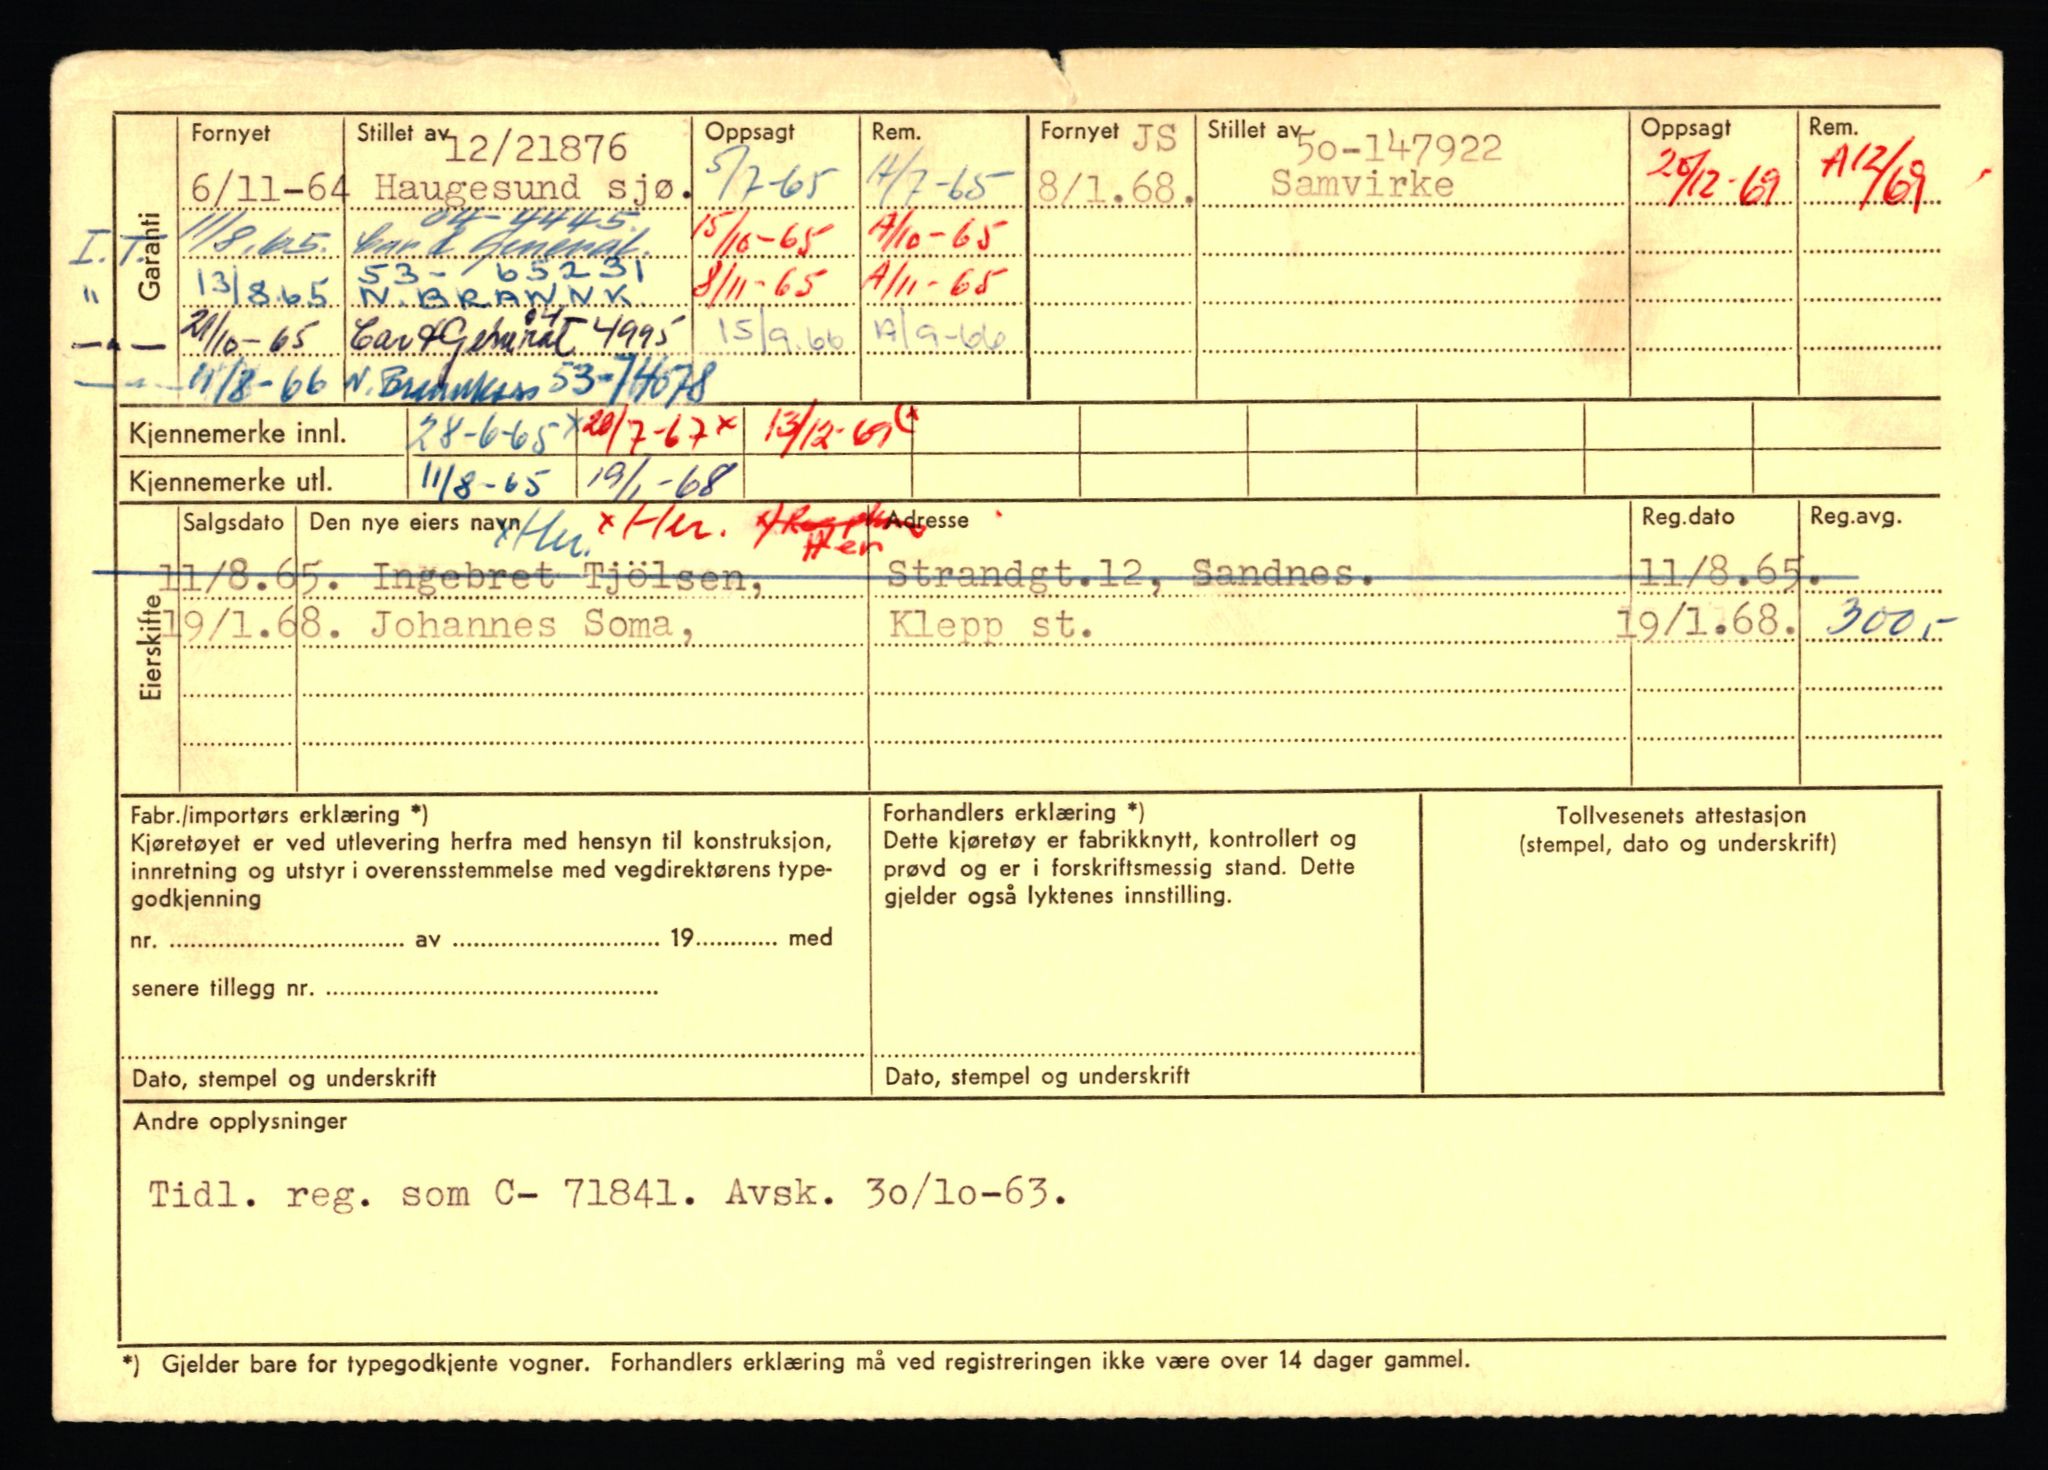 Garanti
Fornyet Stillet av Oppsagt Rem. Fornyet JS Stillet av Oppsagt Rem.
12/21876 50-147922
6/11-64 Haugesund sjø. 5/7-65 A/7-65 8/1.68. Samvirke 20/12-69 A12/69
04-4445.
I.T. 11/8.65. Car & General. 15/10-65 A/10-65
53- 65231
" 13/8.65 N. BRANNK. 8/11-65 A/11-65
—"— 21/10-65 Car & General 04 4995 15/9.66 A/9-66
—"— 11/8-66 N. Brannkass 53-74078
Kjennemerke innl. 28-6-65 x 20/7-67 x 13/12-69 (x
Kjennemerke utl. 11/8-65 19/1-68
Eierskifte
Salgsdato Den nye eiers navn Adresse Reg.dato Reg.avg.
x Her. x Her. x) Her
11/8.65. Ingebret Tjölsen, Strandgt.12, Sandnes. 11/8.65.
19/1.68. Johannes Soma, Klepp st. 19/1.68. 300,-
Fabr./importørs erklæring *)
Kjøretøyet er ved utlevering herfra med hensyn til konstruksjon,
innretning og utstyr i overensstemmelse med vegdirektørens type-
godkjenning
nr. .......... av .......... 19.......... med
senere tillegg nr. ..........
Dato, stempel og underskrift
Forhandlers erklæring *)
Dette kjøretøy er fabrikknytt, kontrollert og
prøvd og er i forskriftsmessig stand. Dette
gjelder også lyktenes innstilling.
Dato, stempel og underskrift
Tollvesenets attestasjon
(stempel, dato og underskrift)
Andre opplysninger
Tidl. reg. som C- 71841. Avsk. 30/10-63.
*) Gjelder bare for typegodkjente vogner. Forhandlers erklæring må ved registreringen ikke være over 14 dager gammel.